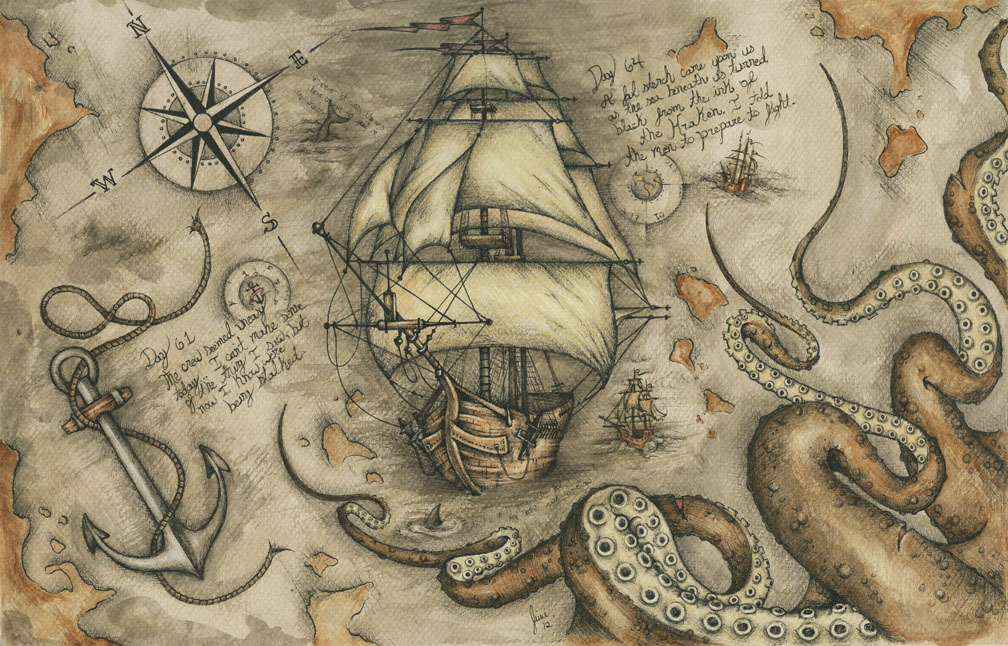 N
E
W
S
Day 64
A fal sterch came upon us
as the sea beneath us turned
black from the ink of
the Kraken. I told
the men to prepare to fight.
Day 61
The crew seemed uneasy
today. I can't make sense
of the thing I saw, but
now I know we're
being stalked.
June
12